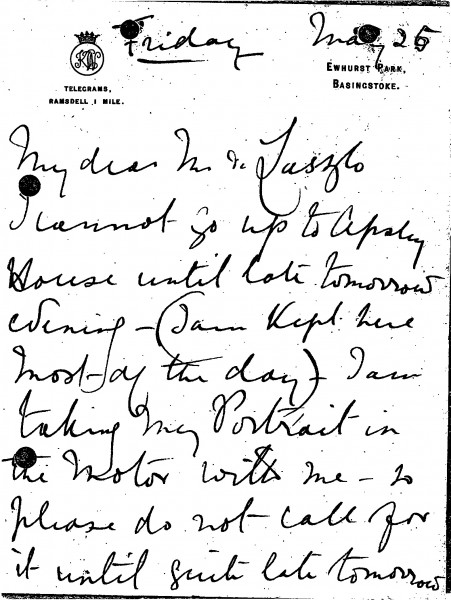 Friday May 25
EWHURST PARK,
BASINGSTOKE.
TELEGRAMS,
RAMSDELL 1 MILE.
My dear Mr de Laszlo
I cannot go up to Apsley
House until late tomorrow
evening – (I am Kept here
most of the day) – I am
taking my Portrait in
the Motor with me – so
please do not call for
it until quite late tomorrow